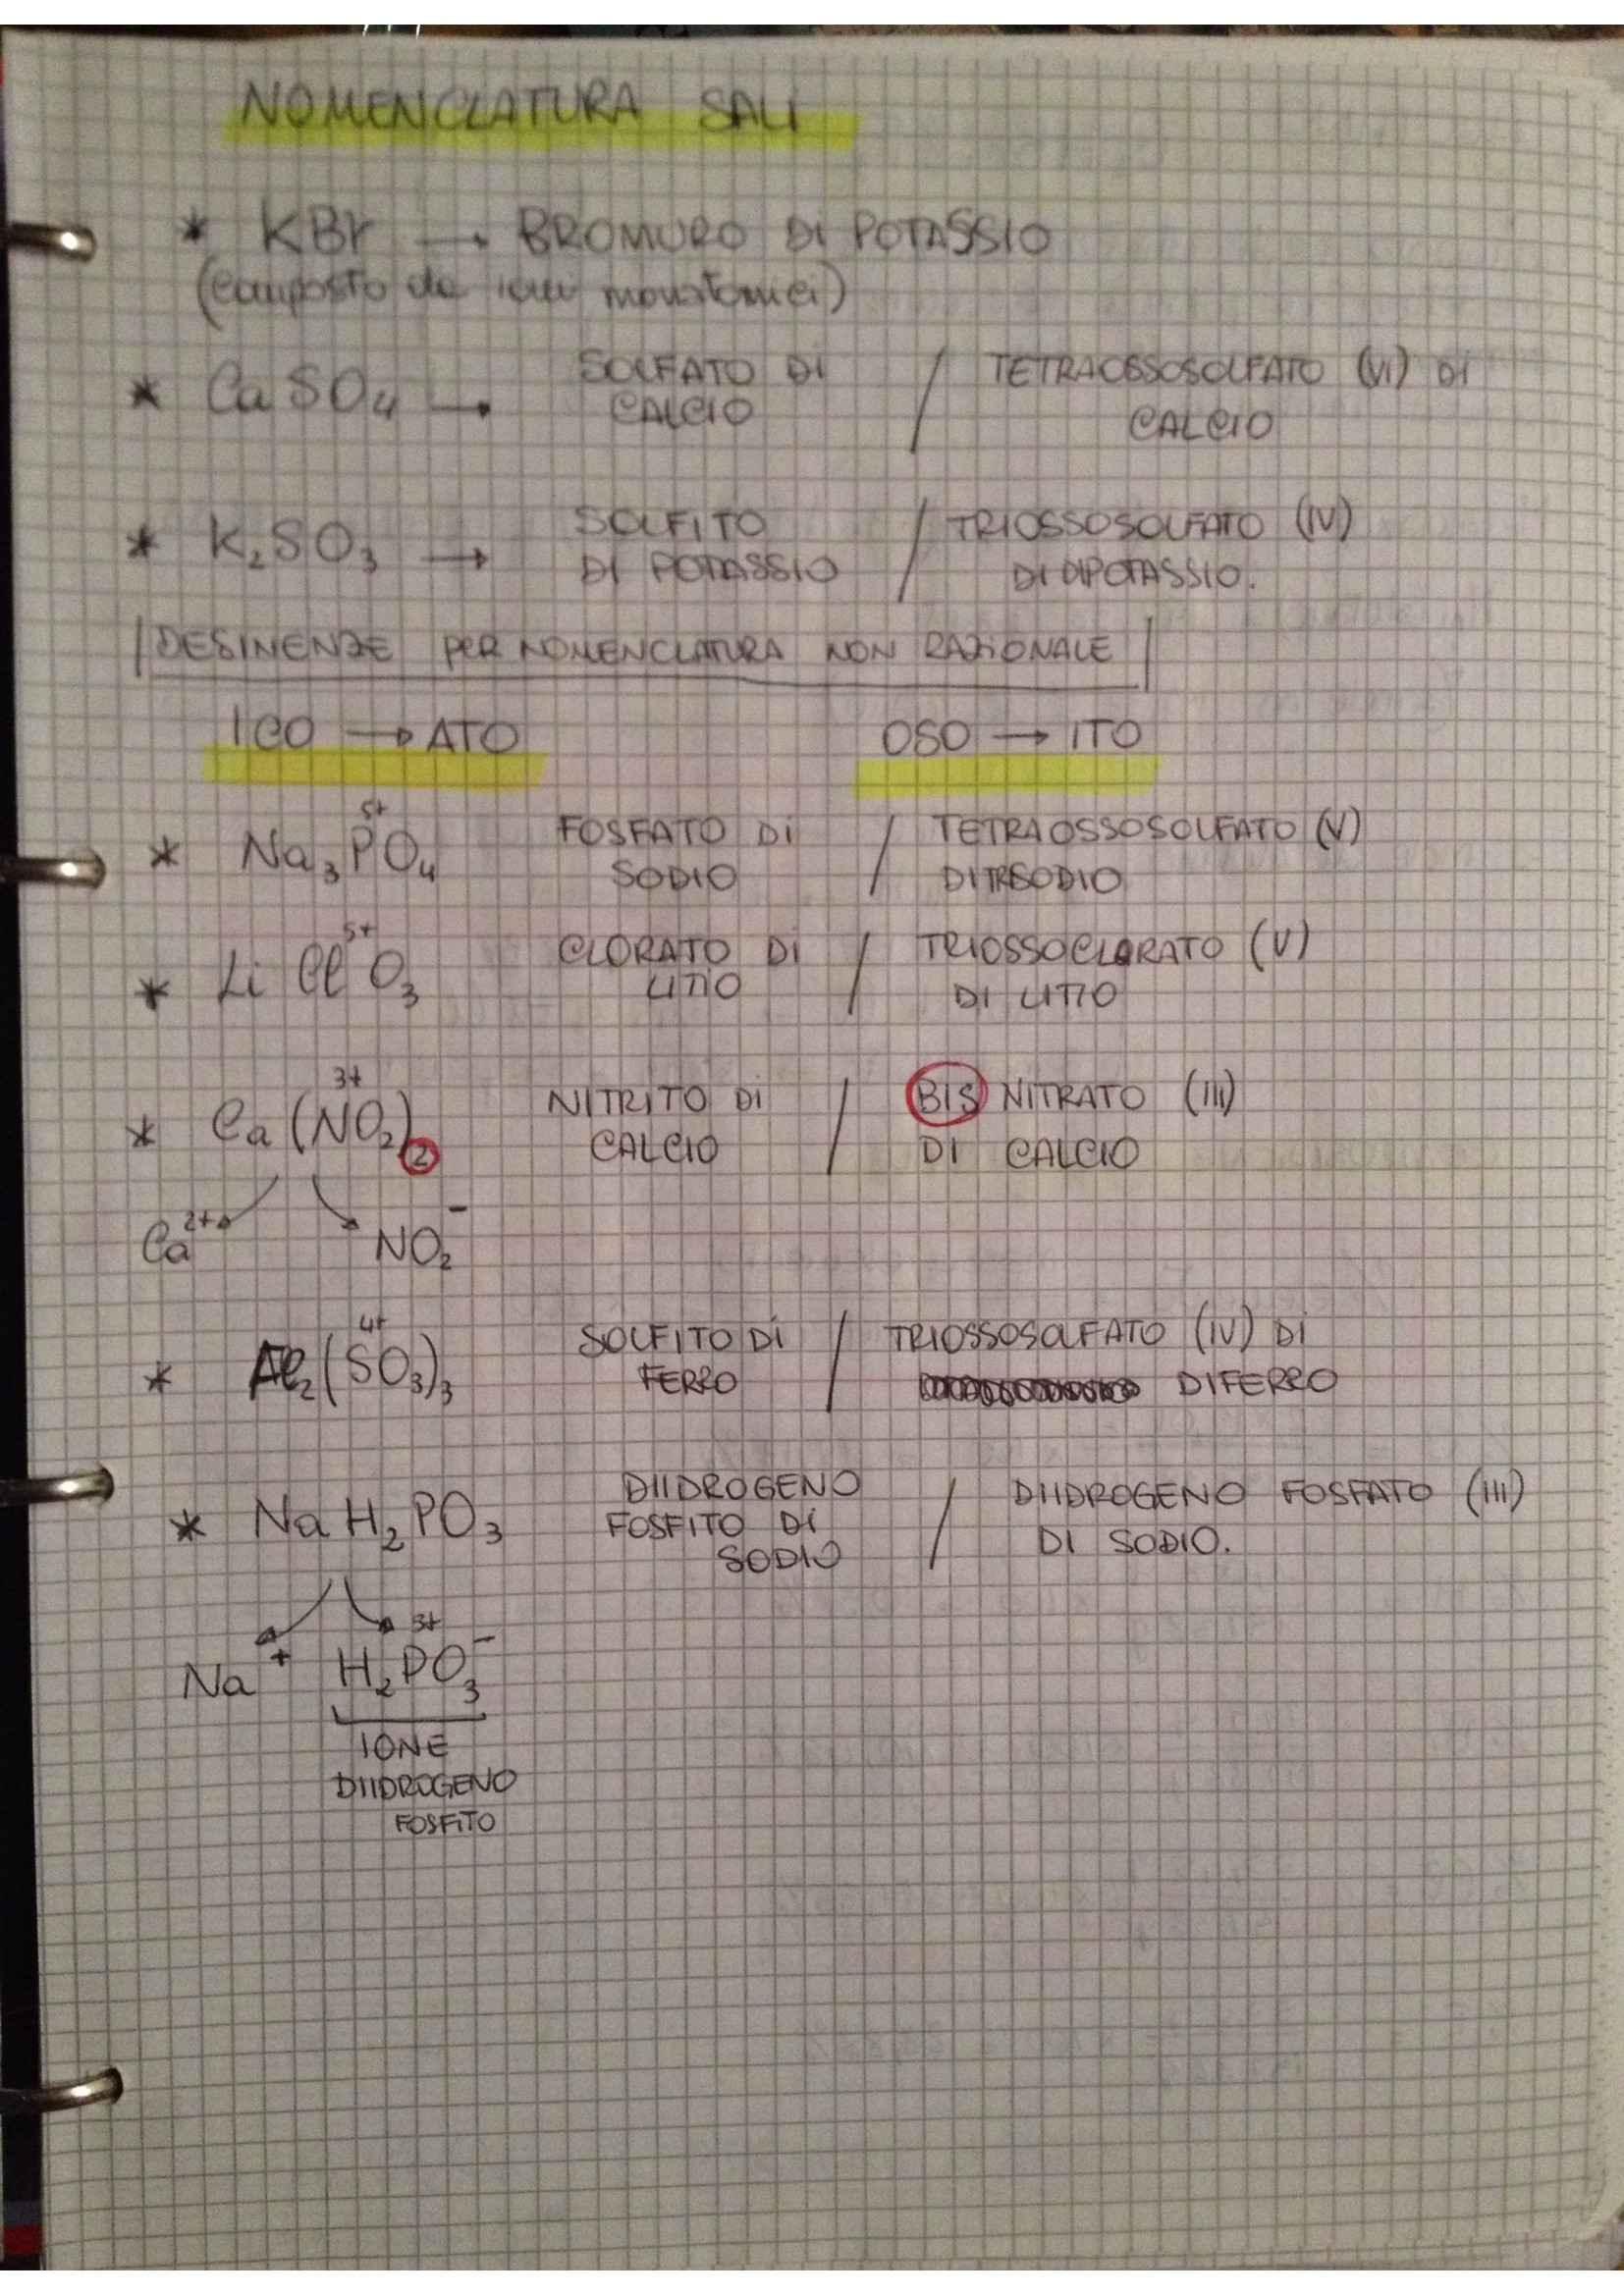 NOMENCLATURA SALI
* KBr → BROMURO DI POTASSIO
(composto da ioni monatomici)
* CaSO₄ → SOLFATO DI CALCIO / TETRAOSSOSOLFATO (VI) DI CALCIO
* K₂SO₃ → SOLFITO DI POTASSIO / TRIOSSOSOLFATO (IV) DI DIPOTASSIO.
DESINENZE PER NOMENCLATURA NON RAZIONALE
ICO → ATO OSO → ITO
5+
* Na₃PO₄ FOSFATO DI SODIO / TETRAOSSOSOLFATO (V) DITRISODIO
5+
* LiClO₃ CLORATO DI LITIO / TRIOSSOCLORATO (V) DI LITIO
3+
* Ca(NO₂)₂ NITRITO DI CALCIO / BIS NITRATO (III) DI CALCIO
Ca²⁺ NO₂⁻
4+
* Fe₂(SO₃)₃ SOLFITO DI FERRO / TRIOSSOSOLFATO (IV) DI DIFERRO
* NaH₂PO₃ DIIDROGENO FOSFITO DI SODIO / DIIDROGENO FOSFATO (III) DI SODIO.
3+
Na⁺ H₂PO₃⁻
IONE
DIIDROGENO
FOSFITO